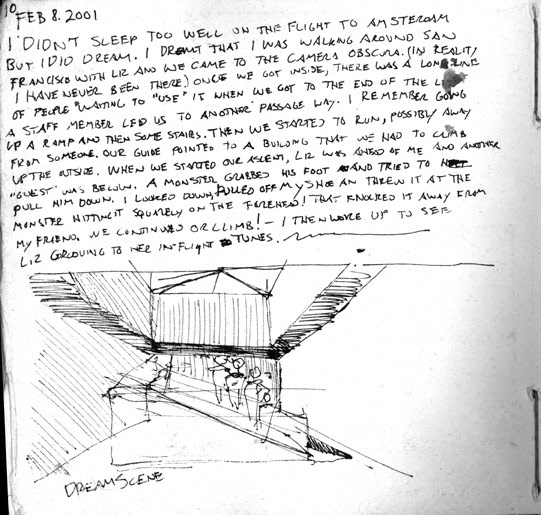 10
FEB 8. 2001
I DIDN'T SLEEP TOO WELL ON THE FLIGHT TO AMSTERDAM
BUT I DID DREAM. I DREAMT THAT I WAS WALKING AROUND SAN
FRANCISCO WITH LIZ AND WE CAME TO THE CAMERA OBSCURA. (IN REALITY
I HAVE NEVER BEEN THERE) ONCE WE GOT INSIDE, THERE WAS A LONG LINE
OF PEOPLE WAITING TO "USE" IT WHEN WE GOT TO THE END OF THE
A STAFF MEMBER LED US TO ANOTHER PASSAGE WAY. I REMEMBER GOING
UP A RAMP AND THEN SOME STAIRS. THEN WE STARTED TO RUN, POSSIBLY AWAY
FROM SOMEONE. OUR GUIDE POINTED TO A BUILDING THAT WE HAD TO CLIMB
UP THE OUTSIDE. WHEN WE STARTED OUR ASCENT, LIZ WAS AHEAD OF ME AND ANOTHER
"GUEST" WAS BELOW. A MONSTER GRABBED HIS FOOT AND TRIED TO
PULL HIM DOWN. I LOOKED DOWN, PULLED OFF MY SHOE AN THREW IT AT THE
MONSTER HITTING IT SQUARELY ON THE FOREHEAD! THAT KNOCKED IT AWAY FROM
MY FRIEND. WE CONTINUED OR CLIMB! – I THEN WOKE UP TO SEE
LIZ GROOVING TO HER IN-FLIGHT TUNES.
DREAM SCENE